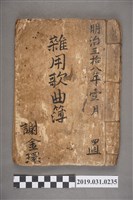 明治三拾八年壹月
雜用歌曲簿
謝金環
2019.031.0235